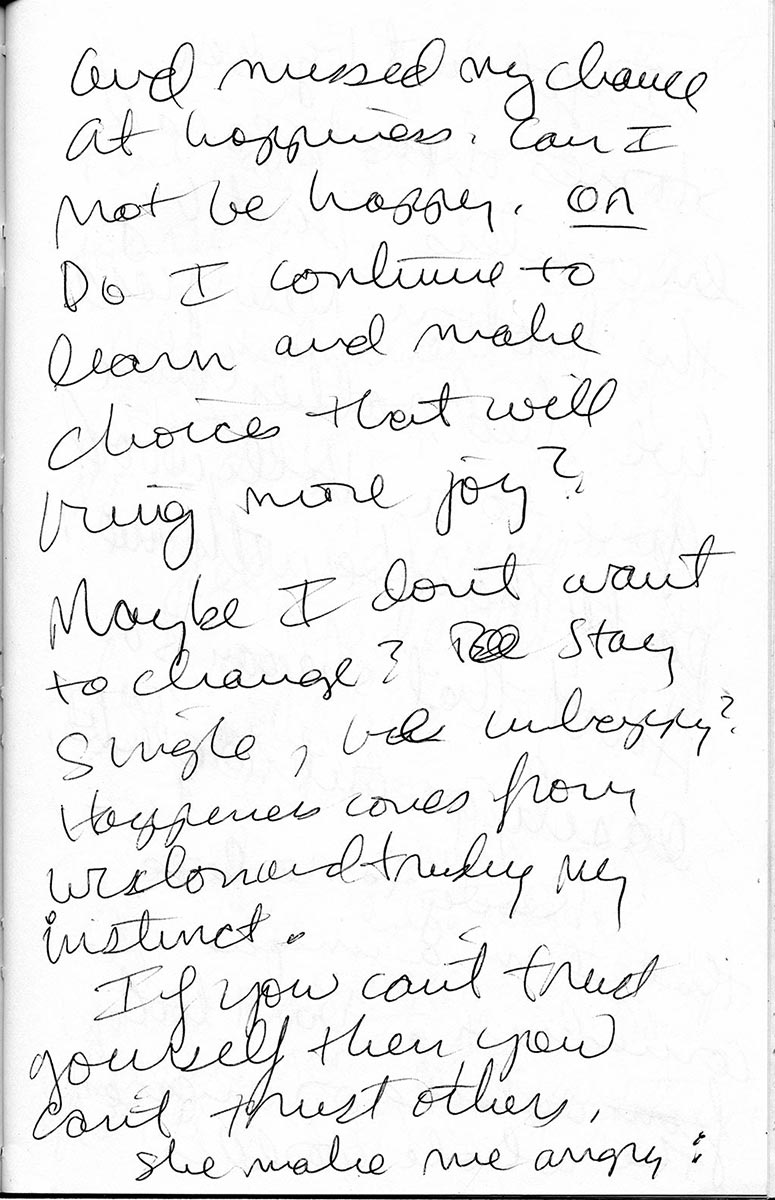 and missed my chance
at happiness. Can I
not be happy. OR
Do I continue to
learn and make
choices that will
bring more joy?
Maybe I don't want
to change? Stay
single, be unhappy?
Happiness comes from
wisdom and trusting my
instinct.
If you can't trust
yourself then you
can't trust others,
she make me angry: